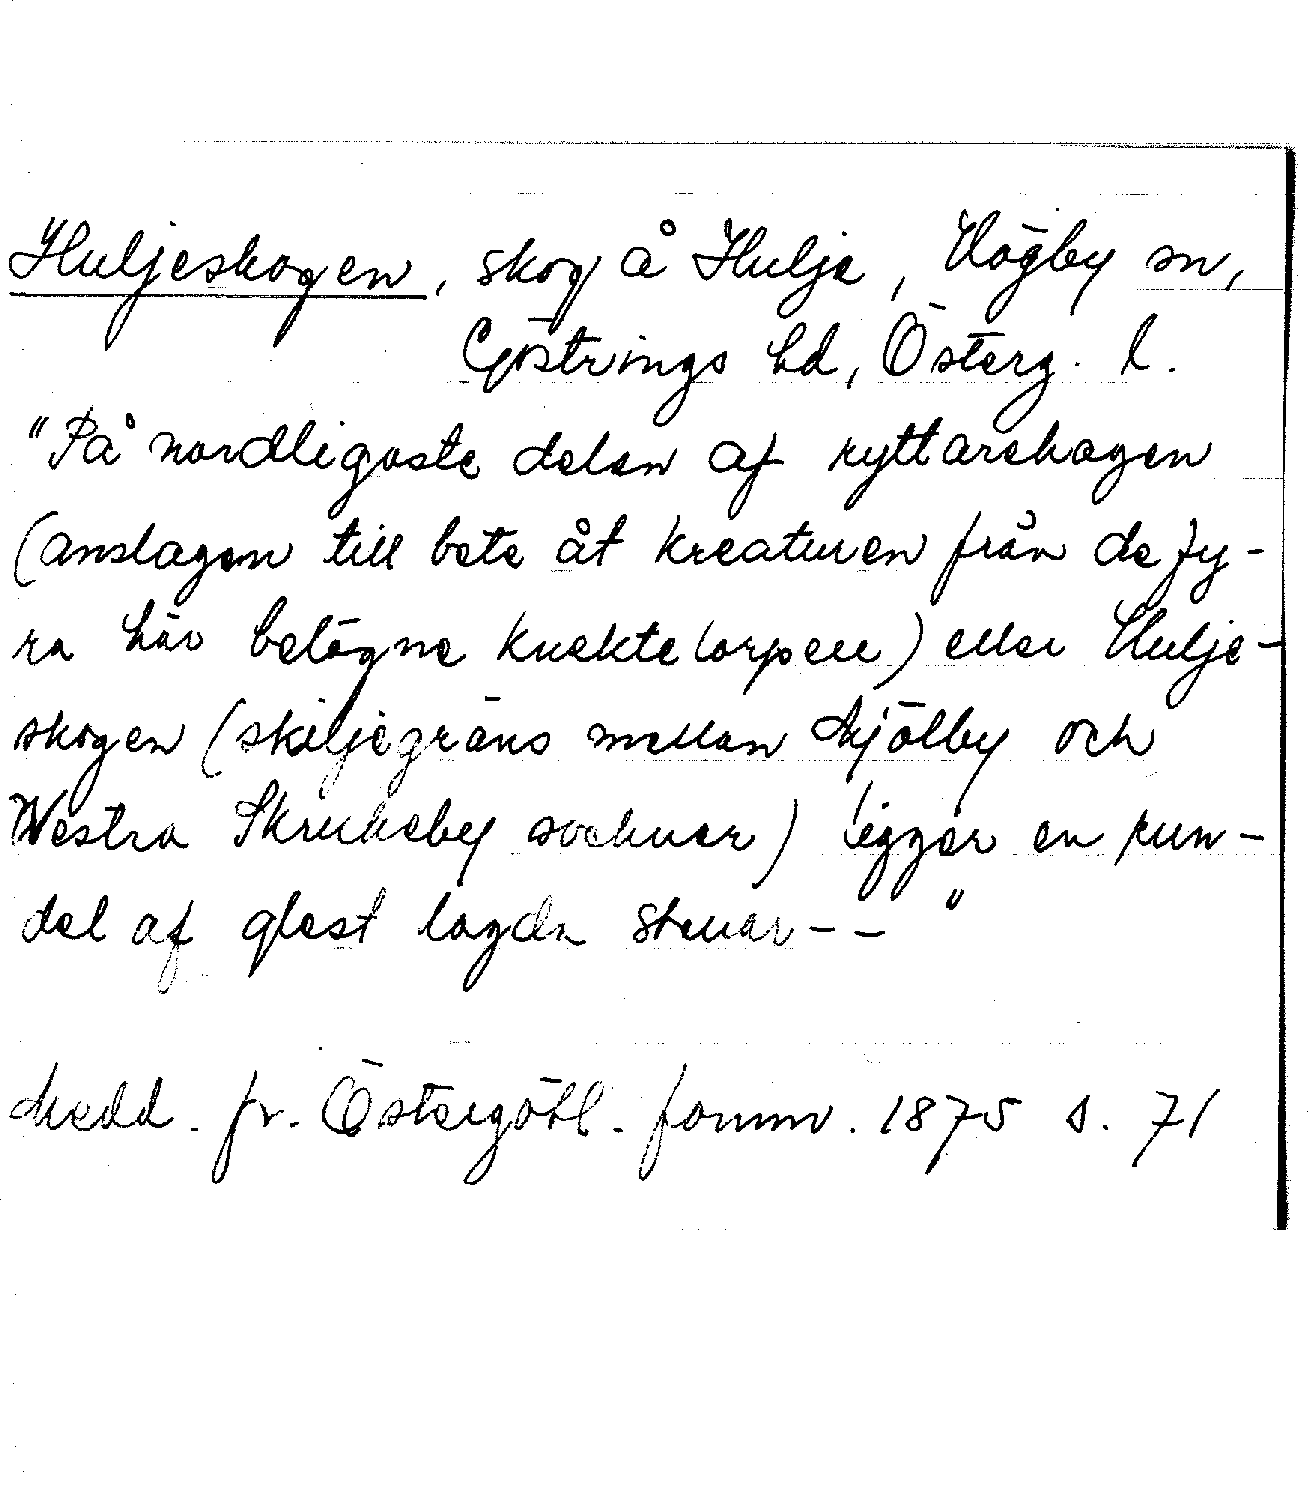 Huljeskogen, skog å Hulje, Högby sn,
Göstrings hd, Österg. l.
"På nordligaste delen af ryttarehagen
(anslagen till bete åt kreaturen från de fy-
ra här belägne knektetorpen) eller Hulje-
skogen (skiljegräns mellan Mjölby och
Westra Skrukeby socknar) ligger en run-
del af glest lagda stenar - - "
Medd. fr. Östergötl. fornm. 1875 s. 71